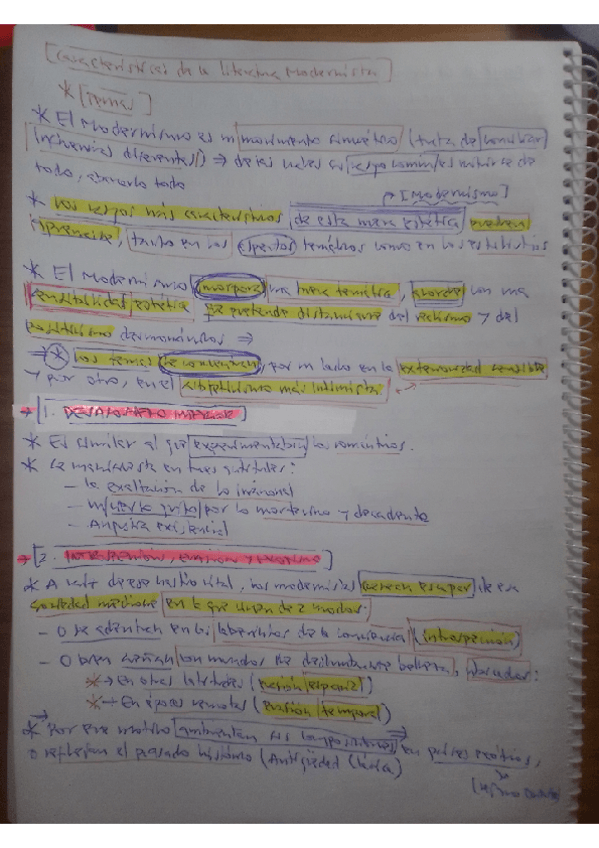 [Características de la literatura Modernista]
* [Temas]
* El Modernismo es un movimiento sincrético (trata de conciliar
influencias diferentes) ⇒ de las cuales su rasgo común es nutrirse de
todo, abarcarlo todo
→ [Modernismo]
* Los rasgos más característicos de esta nueva estética pueden
apreciarse, tanto en los aspectos temáticos como en los estilísticos
* El Modernismo incorpora una nueva temática, acorde con una
sensibilidad estética que pretende distanciarse del realismo y del
positivismo decimonónicos ⇒
⇒ * Los temas se concentran, por un lado en la exterioridad sensible
y por otro, en el subjetivismo más intimista
→ [1. DESASOSIEGO INTERIOR]
* Es similar al que experimentaban los románticos.
* Se manifiesta en tres actitudes:
- La exaltación de lo irracional
- un cierto gusto por lo mortecino y decadente
- Angustia existencial
→ [2. INTROSPECCIÓN, EVASIÓN Y EXOTISMO]
* A raíz de ese hastío vital, los modernistas desean escapar de esa
sociedad mediocre en la que viven de 2 modos:
- O se adentran en los laberintos de la conciencia (introspección)
- O bien sueñan con mundos de deslumbrante belleza, ubicados:
* → En otras latitudes (evasión espacial)
* → En épocas remotas (evasión temporal)
* Por ese motivo ambientan sus composiciones en países exóticos,
o reflejan el pasado histórico (Antigüedad Clásica)